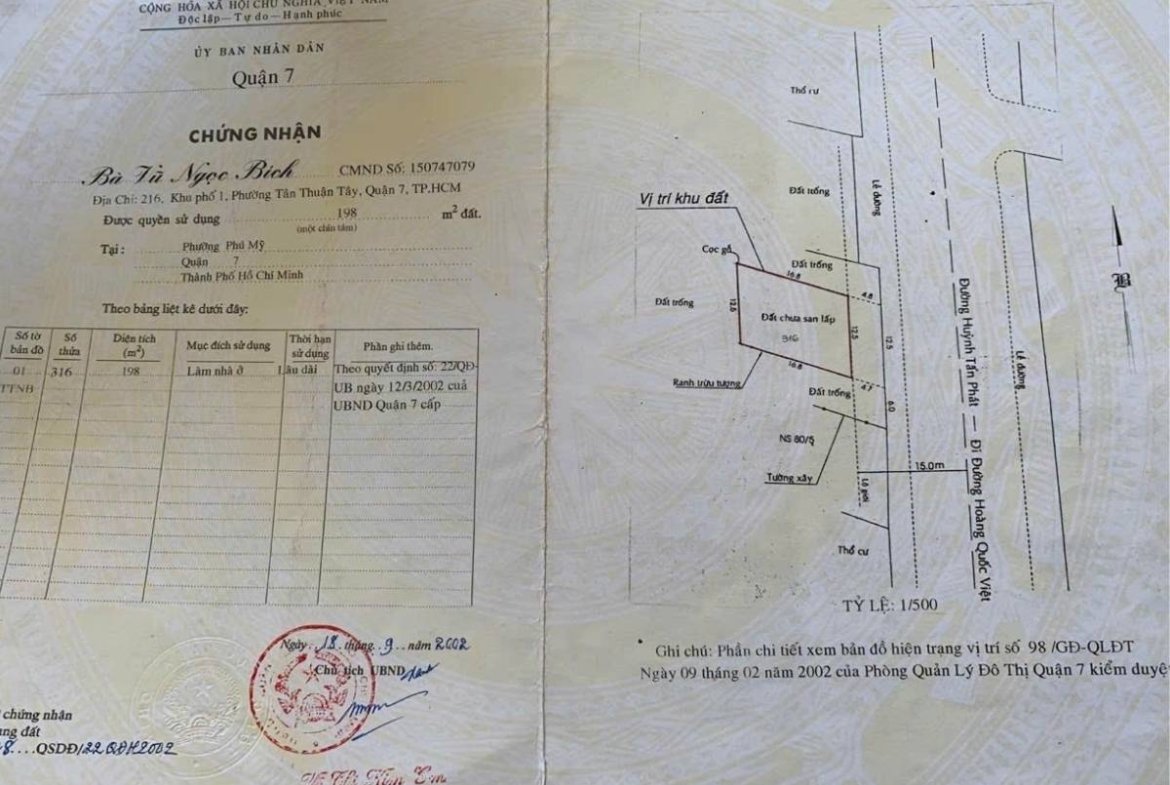 CỘNG HÒA XÃ HỘI CHỦ NGHĨA VIỆT NAM
Độc lập — Tự do — Hạnh phúc
ỦY BAN NHÂN DÂN
Quận 7
CHỨNG NHẬN
Bà Từ Ngọc Bích CMND Số: 150747079
Địa Chỉ: 216, Khu phố 1, Phường Tân Thuận Tây, Quận 7, TP.HCM
Được quyền sử dụng 198 m² đất.
(một chín tám)
Tại : Phường Phú Mỹ
Quận 7
Thành Phố Hồ Chí Minh
Theo bảng liệt kê dưới đây:
Số tờ bản đồ Số thửa Diện tích (m²) Mục đích sử dụng Thời hạn sử dụng Phần ghi thêm.
01 316 198 Làm nhà ở Lâu dài Theo quyết định số: 22/QĐ-
TTNB UB ngày 12/3/2002 cuả
UBND Quận 7 cấp
Ngày 18 tháng 9 năm 2002
Chủ tịch UBND
chứng nhận
ng đất
8....QSDĐ/22 QĐH2002
Thổ cư
Đất trống
Lề đường
Vị trí khu đất
Cọc gỗ
Đất trống
16.8
4.8
Đất trống
12.5
Đất chưa san lấp
316
12.5
12.5
Ranh trừu tượng
16.8
4.7
Đất trống
6.0
NS 80/5
Tường xây
Lộ giới
15.0m
Thổ cư
Đường Huỳnh Tấn Phát — Đi Đường Hoàng Quốc Việt
Lề đường
TỶ LỆ: 1/500
Ghi chú: Phần chi tiết xem bản đồ hiện trạng vị trí số 98 /GĐ-QLĐT
Ngày 09 tháng 02 năm 2002 của Phòng Quản Lý Đô Thị Quận 7 kiểm duyệ